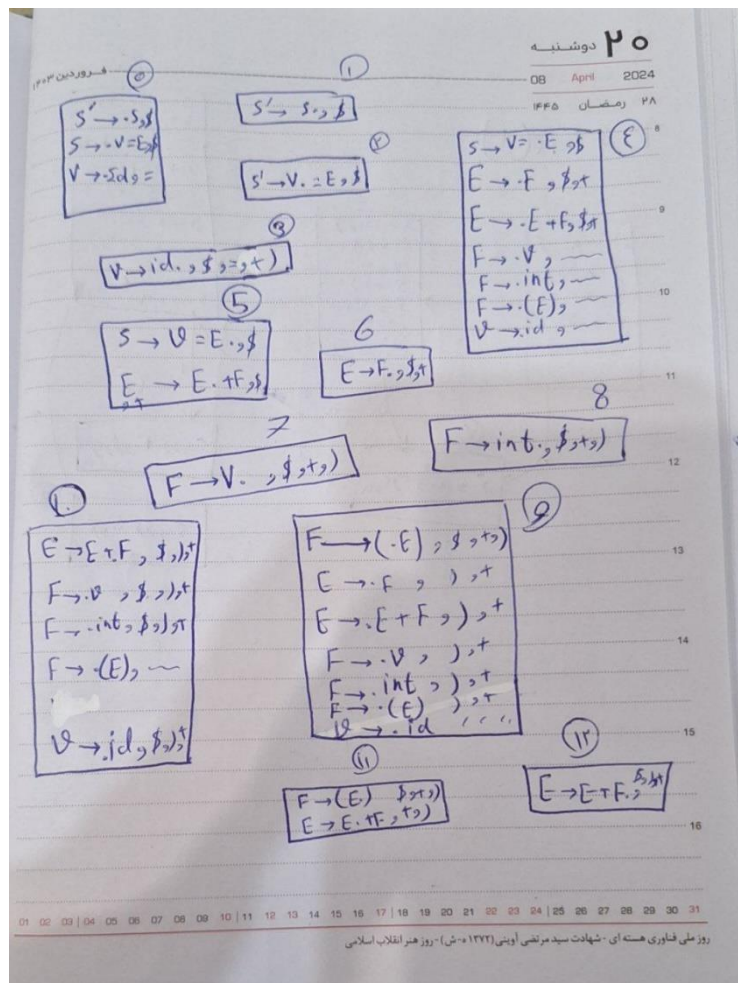 ۲۰ دوشنبه
08 April 2024
۲۸ رمضان ۱۴۴۵
فروردین ۱۴۰۳
۰
S' → ·S, $
S → ·V=E, $
V → ·Id, =
۱
S' → S·, $
۲
S' → V· = E, $
۳
V → id·, $, =, +)
۴
S → V= ·E, $
E → ·F, $,+
E → ·E+F, $,+
F → ·V, ~
F → ·int, ~
F → ·(E), ~
V → ·id, ~
5
S → V = E·, $
E → E· +F, $
,+
6
E → F·, $,+
7
F → V· , $,+,)
8
F → int·, $,+,)
9
F → (·E), $,+,)
E → ·F , ),+
E → ·E+F, ),+
F → ·V, ),+
F → ·int, ),+
F → ·(E) ),+
V → ·id , , , ,
۱۰
E → E+·F, $,),+
F → ·V , $,),+
F → ·int, $,),+
F → ·(E), ~
V → ·id, $,),+
۱۱
F → (E·) $,+,)
E → E·+F, +,)
۱۲
E → E+F·, $,),+
8
9
10
11
12
13
14
15
16
01 02 03 | 04 05 06 07 08 09 10 | 11 12 13 14 15 16 17 | 18 19 20 21 22 23 24 | 25 26 27 28 29 30 31
روز ملی فناوری هسته ای - شهادت سید مرتضی آوینی (۱۳۷۲ ه-ش) - روز هنر انقلاب اسلامی